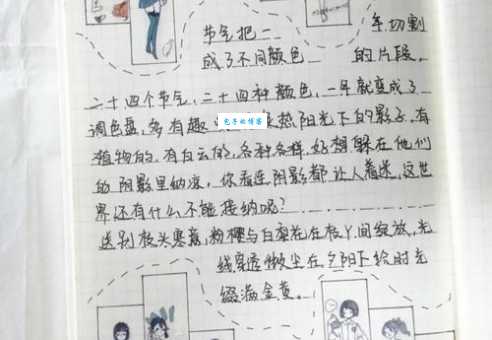 节气把一 年切割
成了不同颜色 的片段。
二十四个节气，二十四种颜色，一年就变成了
调色盘，多有趣 热阳光下的影子，有
包子哒博客
植物的，有白云的，各种各样，好想躲在他们
的阴影里纳凉，你看连阴影都让人着迷，这世
界还有什么不能接纳呢？
送别枝头寒意，粉樱与白梨花在枝丫间绽放，光
线穿透微尘在夕阳下给时光
缀满金黄。